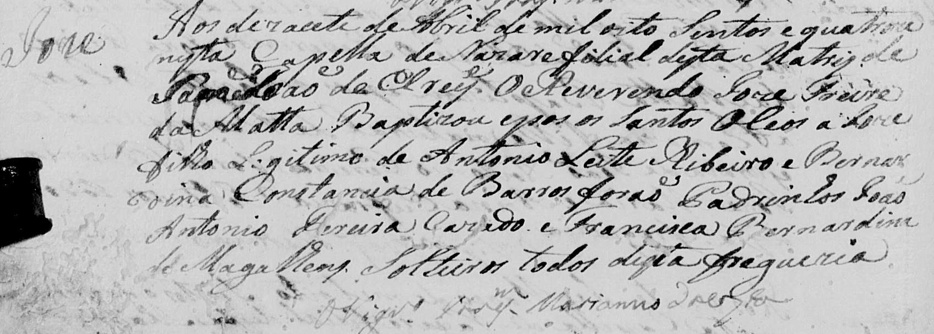 Joze
Aos dezacete de Abril de mil oito Sentos e quatroze
nesta Capella de Nazare filial desta Matriz de
de Elrey. O Reverendo Joze Freire
da Matta Baptizou e pos os Santos Oleos a Joze
filho Legitimo de Antonio Leite Ribeiro e Bernar
dina Constancia de Barros foraõ Padrinhos Joaõ
Antonio Pereira e Francisca Bernardina
de Magalhens Solteiros todos desta fregueria
O Vigr.º Marianno